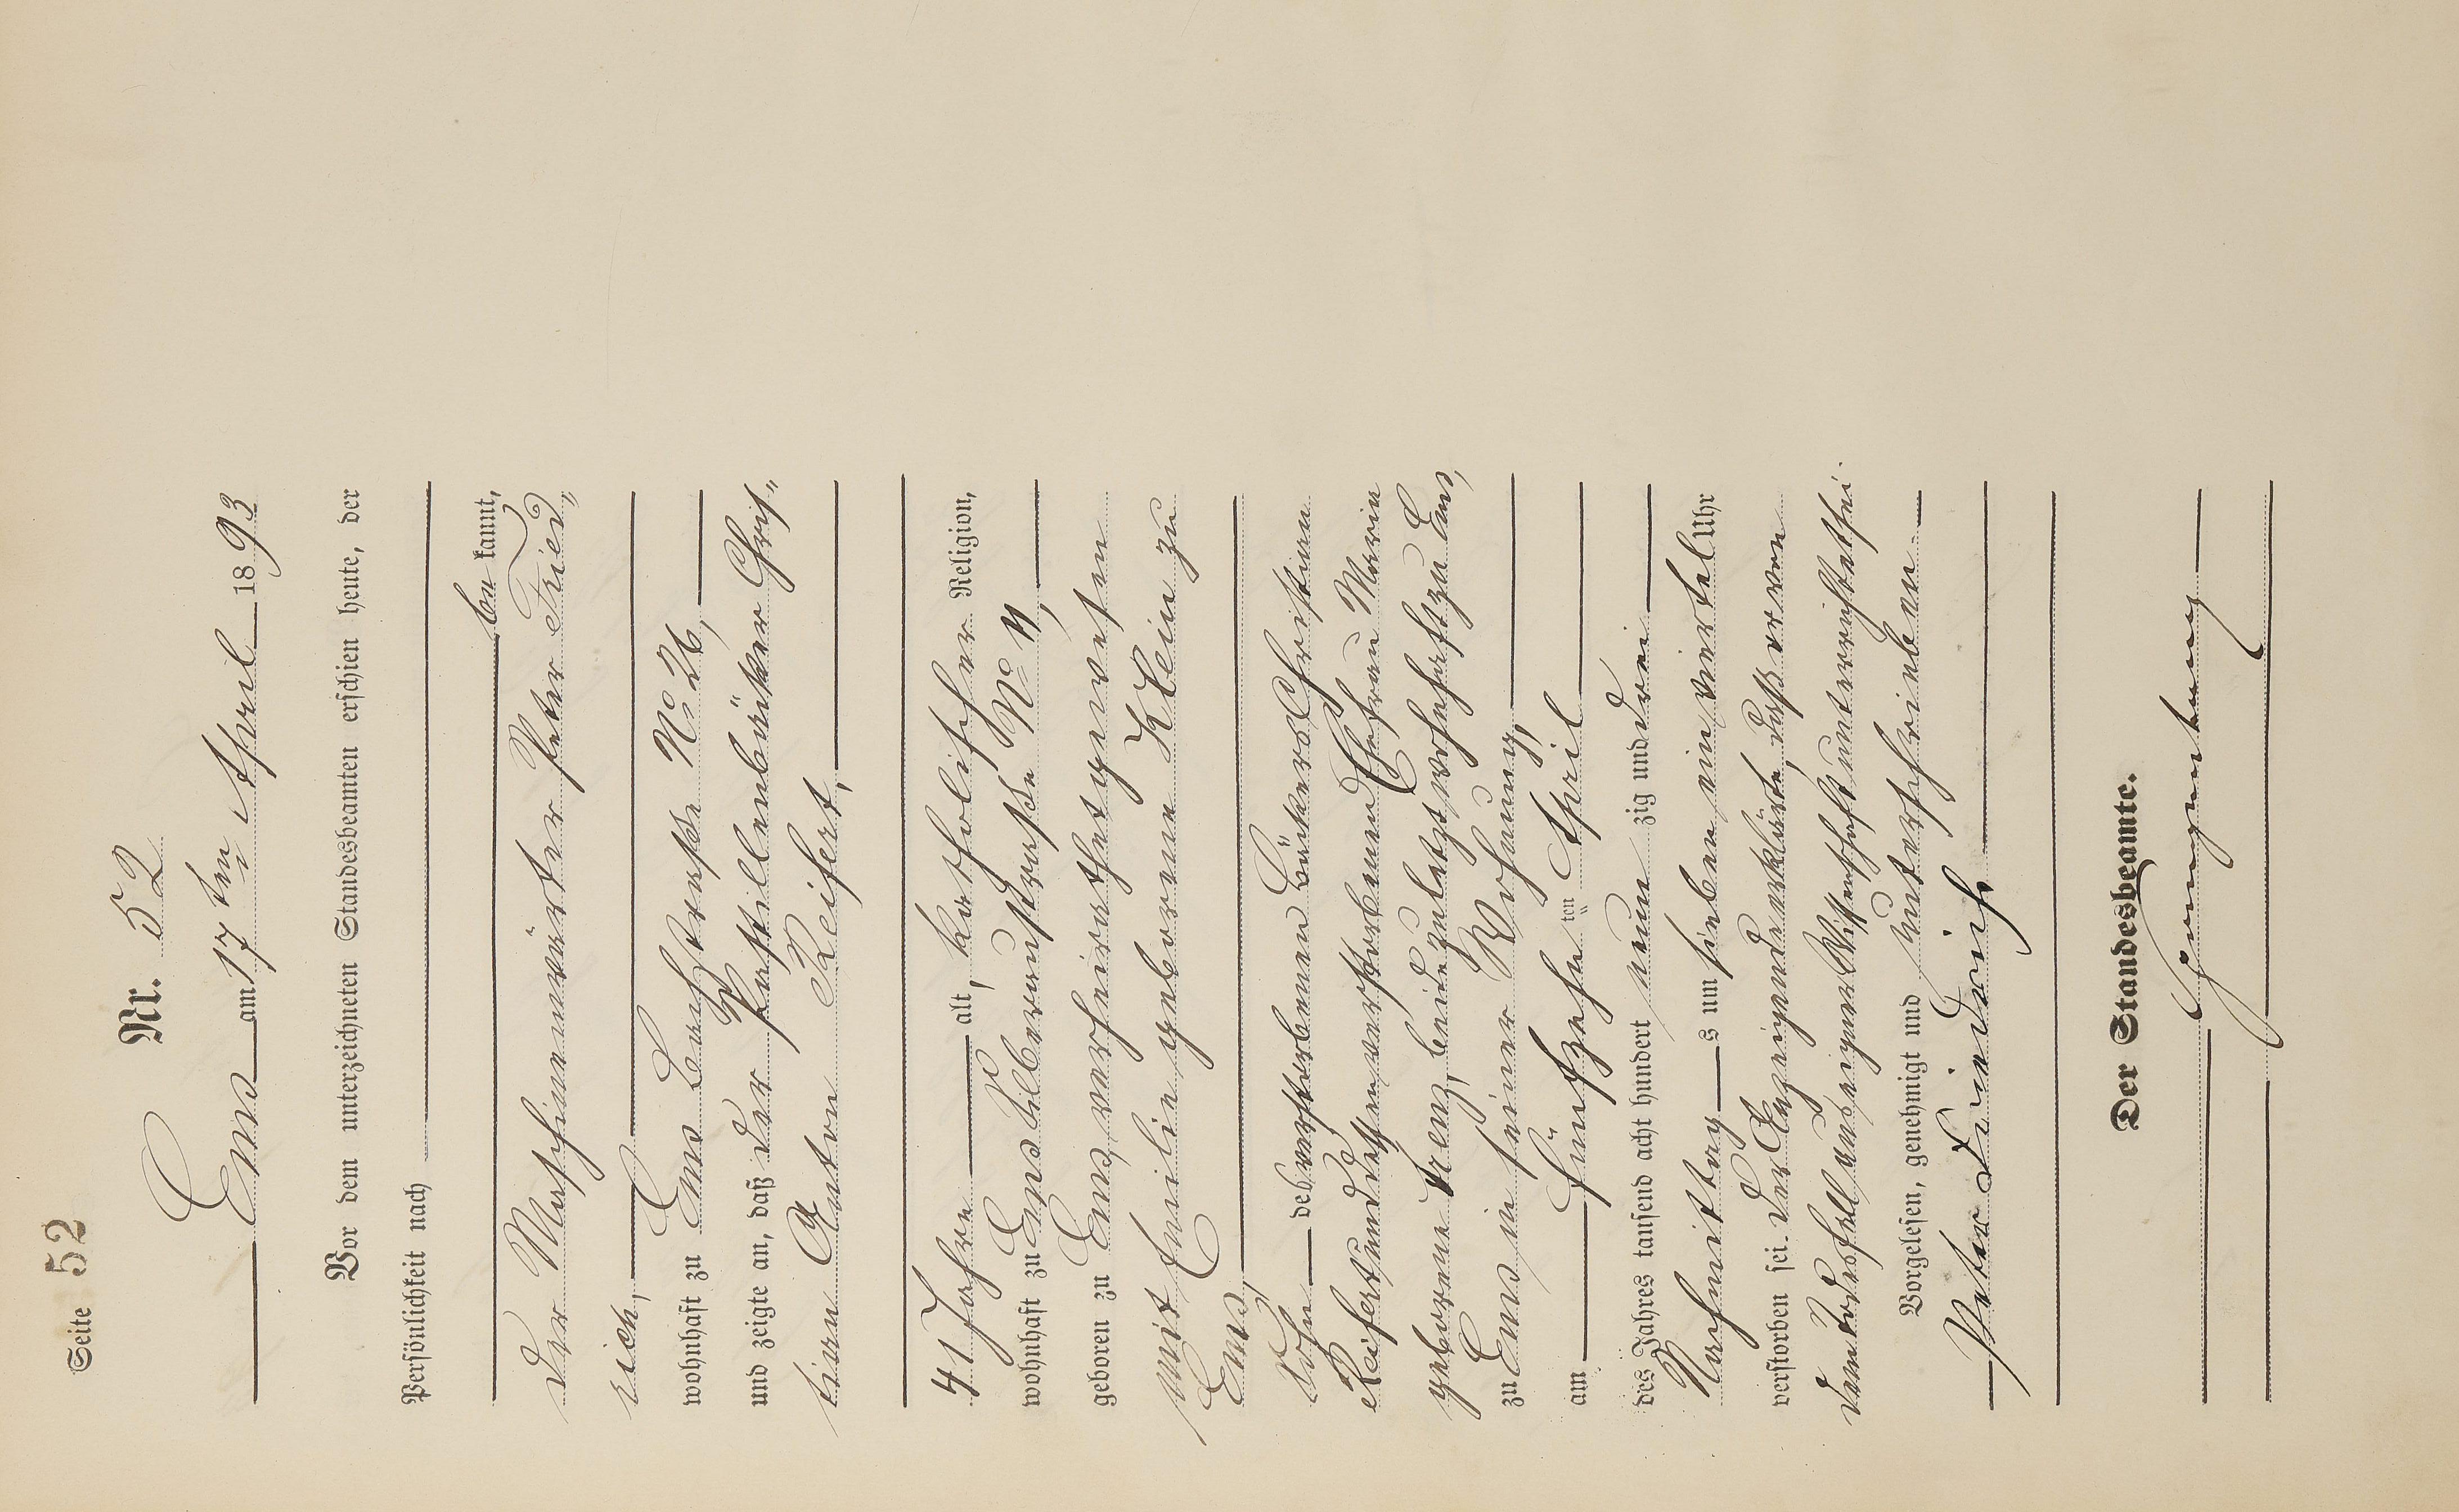 Seite 52
Nr. 52
Ems am 17ten April 1893
Vor dem unterzeichneten Standesbeamten erschien heute, der
Persönlichkeit nach
be kannt,
der Maschinenwärter Peter Fried„
rich,
wohnhaft zu Ems Bachstraße No 26,
und zeigte an, daß der Pastillenbäcker Chris„
tian Anton Reifert,
41 Jahre alt, katholischer Religion,
wohnhaft zu Ems Silberaustraße No 4,
geboren zu Ems, verheirathet gewesen
mit Emilie geborene Klein zu
Ems,
Sohn des verstorbenen Bäckers Christian
Reifert und dessen verstorbenen Ehefrau Maria
geborene Krenz, beide zuletzt wohnhaft zu Ems,
zu Ems in seiner Wohnung,
am fünfzehn ten April
des Jahres tausend acht hundert neun zig und drei
Nachmittag s um sieben ein viertel Uhr
verstorben sei. Der Anzeigende erklärte, daß er von
dem Todesfall aus eigner Wissenschaft unterrichtet sei.
Vorgelesen, genehmigt und unterschrieben
Peter Friedrich
Der Standesbeamte.